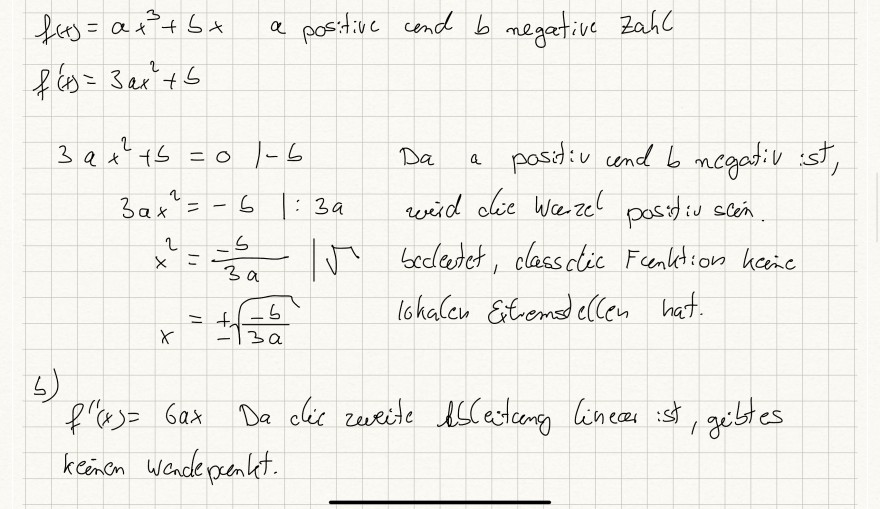 f(x) = ax³ + bx a positive und b negative Zahl
f'(x) = 3ax² + b
3ax² + b = 0 | - b Da a positiv und b negativ ist,
3ax² = - b | : 3a wird die Wurzel positiv sein.
x² = -b/3a | √ bedeutet, dass die Funktion keine
x = ±√(-b/3a) lokalen Extremstellen hat.
b)
f''(x) = 6ax Da die zweite Ableitung linear ist, gibt es
keinen Wendepunkt.